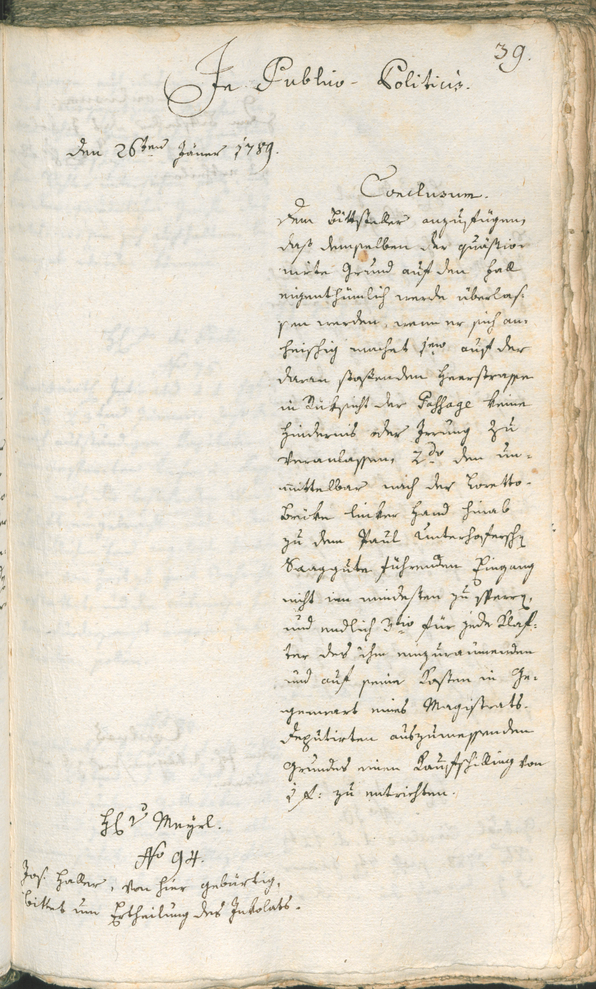 39.
In Publico-Politicis.
den 26ten Jäner 1789.
Conclusum.
dem Bittsteller anzufügen,
daß demselben der quästion
nirte Grund auf den Fall
eigenthümlich werde überlas-
sen werden, wenn er sich an-
heischig machet 1mo auf der
daran stossenden Heerstrasse
in Rücksicht der Passage keine
Hinderniß oder Irrung zu
veranlassen, 2do den un-
mittelbar nach der Loretto-
Brücke linker Hand hinab
zu dem Paul Unterhoferschen
Saaggute führenden Eingang
nicht im mindesten zu sperren,
und endlich 3tio für jede Klaf-
ter des ihm einzuraumenden
und auf seine Kosten in Ge-
genwart eines Magistrats-
deputirten auszumessenden
Grundes einen Kaufschilling von
f: zu entrichten.
Meyrl.
No 94.
Jos. Haller, von hier gebürtig,
bittet um Ertheilung des Inkolats.